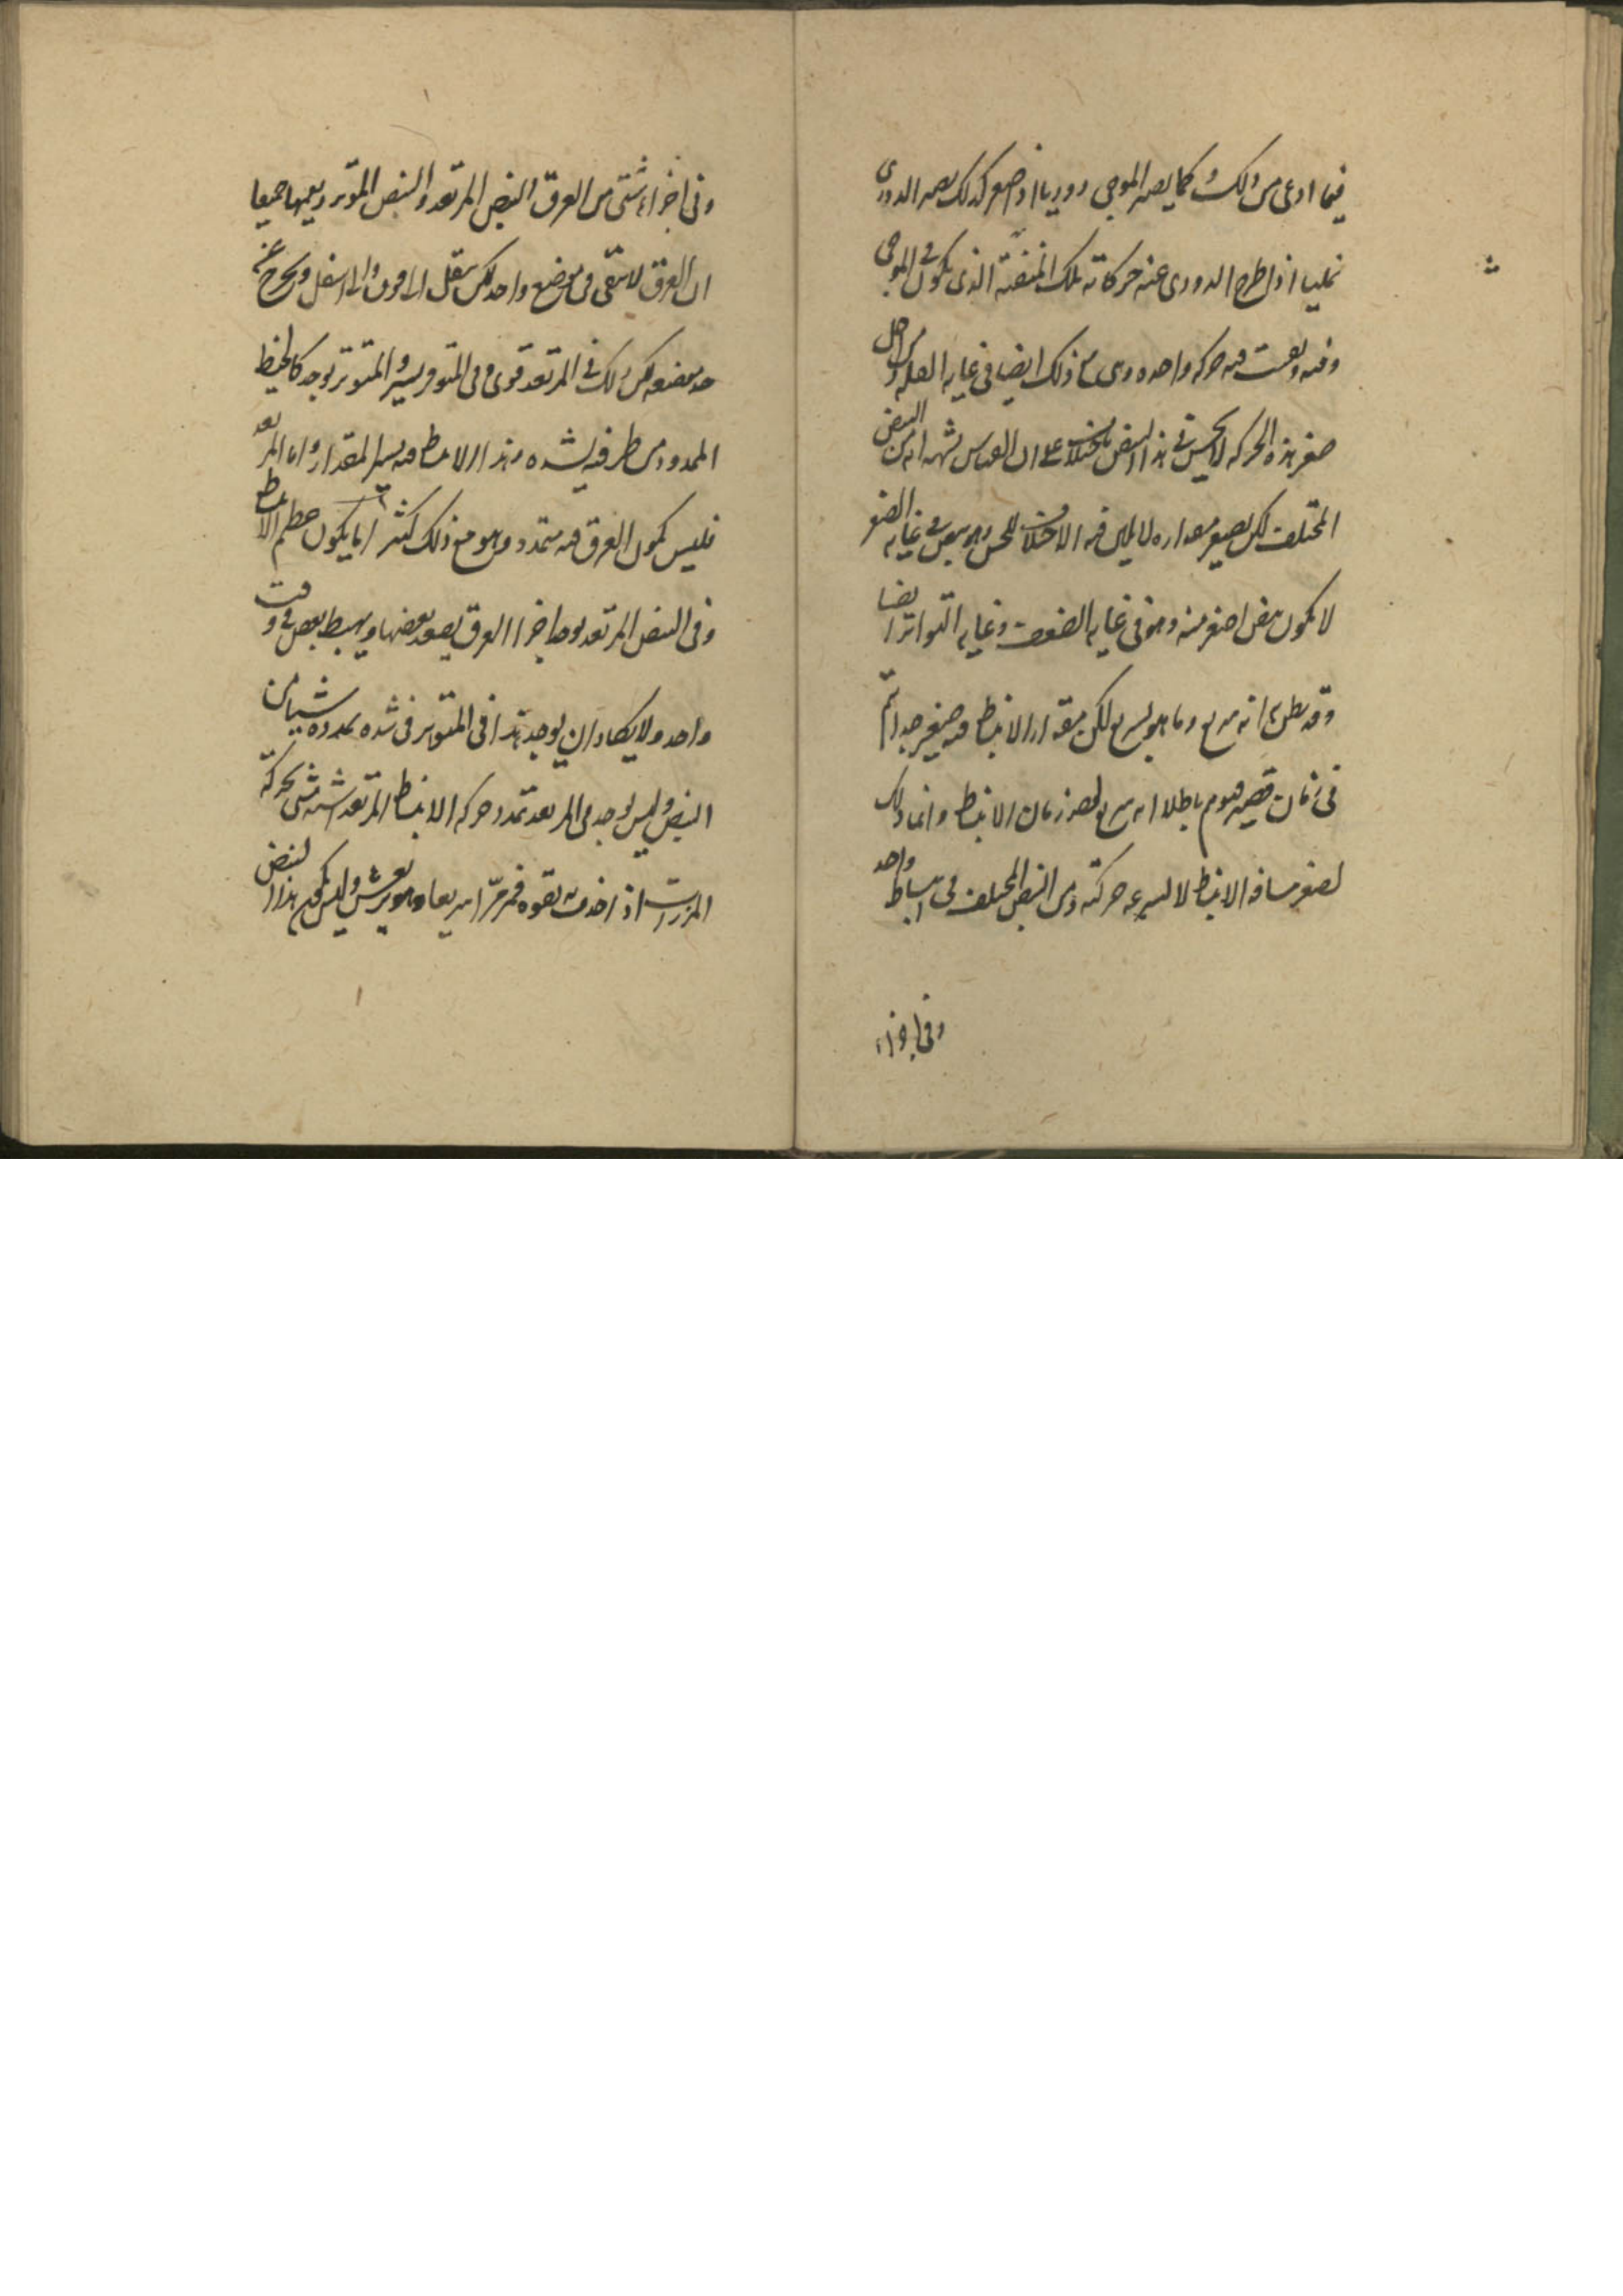 فيما ادعى من ذلك وكما يصير الموجى دوديا اذا صغر كذلك يصير الدودى
نمليا اذا طرح الدودى عنه حركاته تلك المتفننة الذى يكون فى الموجى
وفيه وبقيت فيه حركة واحدة وهى مع ذلك ايضا فى غاية القلة ومن اجل
صغر هذه الحركة لا يحس فى هذا النبض باختلاف على ان القياس يشهد انه من النبض
المختلف لكن لصغر مقداره لا يبين فيه الاختلاف للحس وهو نبض فى غاية الصغر
لا يكون نبض اصغر منه وهو فى غاية الضعف وغاية التواتر ايضا
وقد يظن انه سريع وما هو بسريع لكن مقدار الانبساط فيه صغير جدا يتم
فى زمان قصير فيوهم باطلا انه سريع لقصر زمان الانبساط وانما ذلك
لصغر مسافة الانبساط لا لسرعة حركته ومن النبض المختلف فى انبساط واحد
وفى اجزاء
وفى اجزاء شتى من العرق النبض المرتعد والنبض المتوتر ويعمهما جميعا
ان العرق لا يبقى فى موضع واحد لكن ينتقل الى فوق والى اسفل ويخرج عن
حد موضعه لكن ذلك فى المرتعد قوى وفى المتوتر يسير والمتوتر يوجد كالخيط
الممدود من طرفيه بشدة وهذا الانبساط فيه يسير المقدار واما المرتعد
فليس يكون العرق فيه متمدد وهو مع ذلك اكثر ما يكون عظيم الانبساط
وفى النبض المرتعد يوجد اجزاء العرق يصعد بعضها ويهبط بعض فى وقت
واحد ولا يكاد ان يوجد هذا فى المتوتر فى شدة تمدده شيا من
النبض وليس يوجد فى المرتعد تمدد وحركة الانبساط المرتعد اشبه شى بحركة
اذا اخذت بقوة هزا سريعا وهو يرتعش وليس يكون هذا النبض